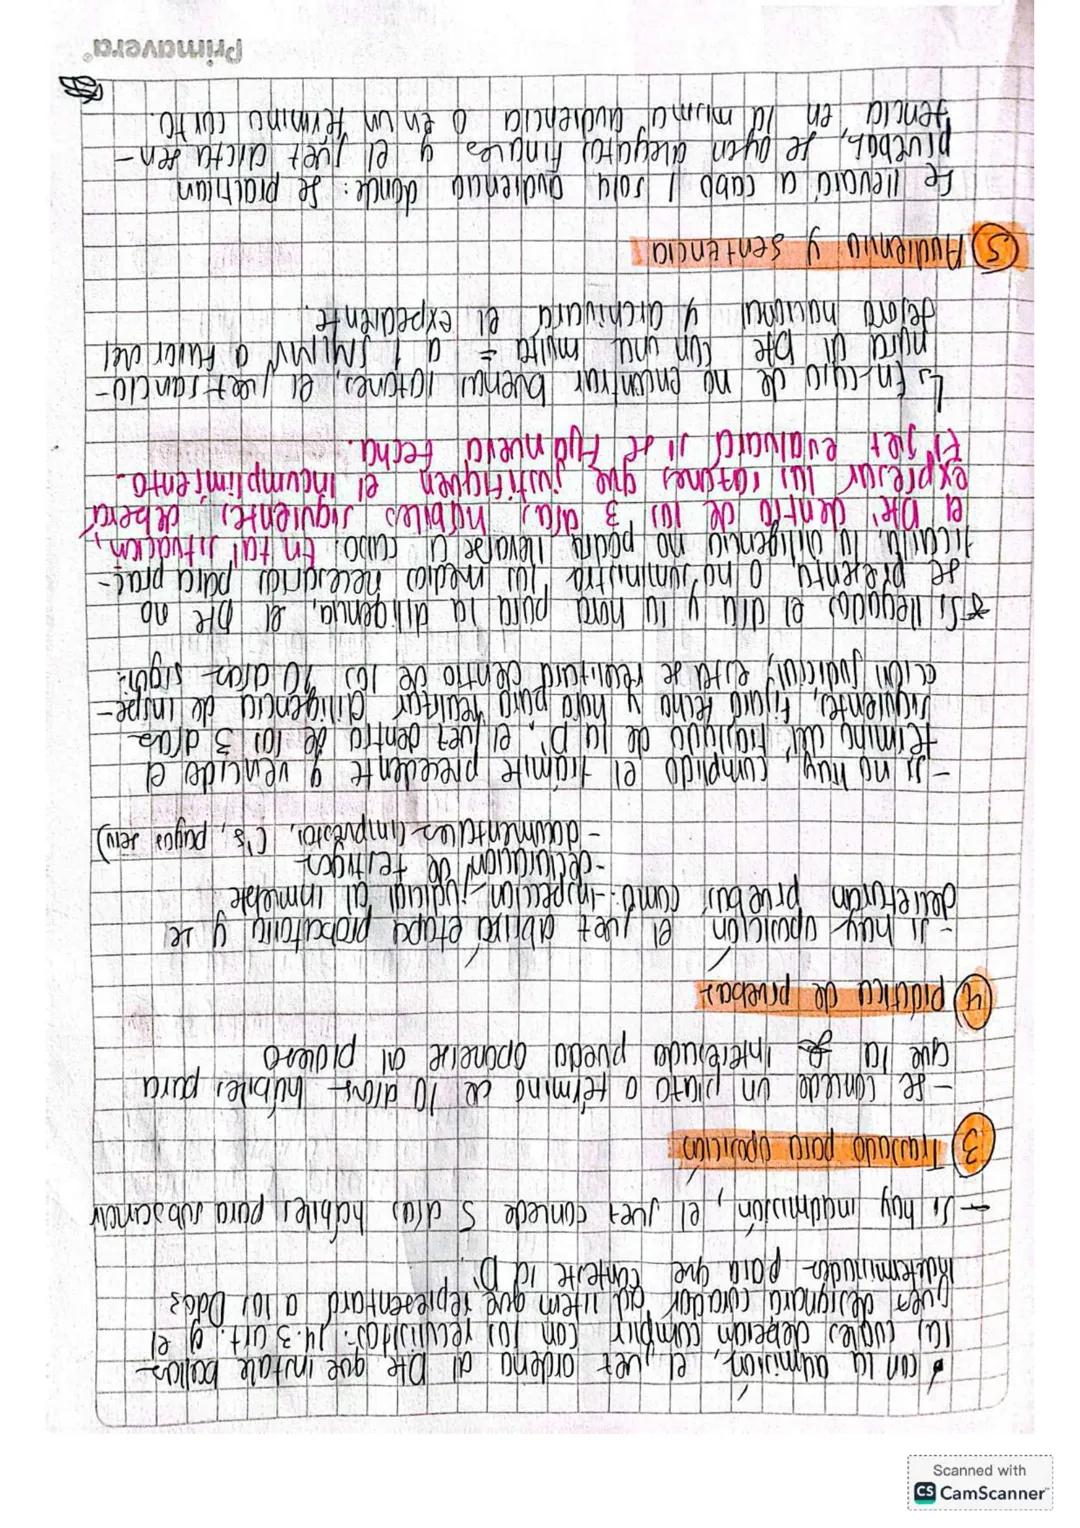 • con la admisión, el juez ordena al Dte que instale vallas
las cuales deberán cumplir con los requisitos: 14.3 art. y el
juez designará curador ad litem que representará a los Ddos
indeterminados para que conteste la D.
→ Si hay inadmisión, el juez concede 5 días hábiles para subsanar
3 Traslado para oposición
- se concede un plazo o término de 10 días hábiles para
que la interesado pueda oponerse al proceso
4 práctica de pruebas
- si hay oposición el juez abrirá etapa probatoria y se
decretarán pruebas como: -inspección judicial al inmueble
-declaración de testigos
-documentales (impuestos, C's, pagos serv)
- si no hay, cumplido el trámite precedente y vencido el
término del traslado de la D, el juez dentro de los 3 días
siguientes, fijará fecha y hora para realizar diligencia de inspe-
cción judicial, esta se realizará dentro de los 20 días sigui.
* Si llegados el día y la hora para la diligencia, el Dte no
se presenta o no suministra los medios necesarios para prac-
ticarla, la diligencia no podrá llevarse a cabo. En tal situación,
el Dte, dentro de los 3 días hábiles siguientes, deberá
expresar las razones que justifiquen el incumplimiento.
El juez evaluará si se fija nueva fecha.
↳ En caso de no encontrar buenas razones, el juez sancio-
nará al Dte con una multa = a 1 SMLMV a favor del
tesoro nacional y archivará el expediente.
5 Audiencia y sentencia
Se llevará a cabo 1 sola audiencia donde: se practican
pruebas, se oyen alegatos finales y el juez dicta sen-
tencia en la misma audiencia o en un término corto.
Primavera®
Scanned with
CS CamScanner™